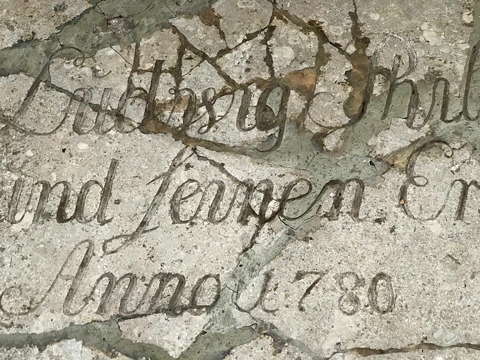 Ludwig Phil
und seinen Er
Anno 1780